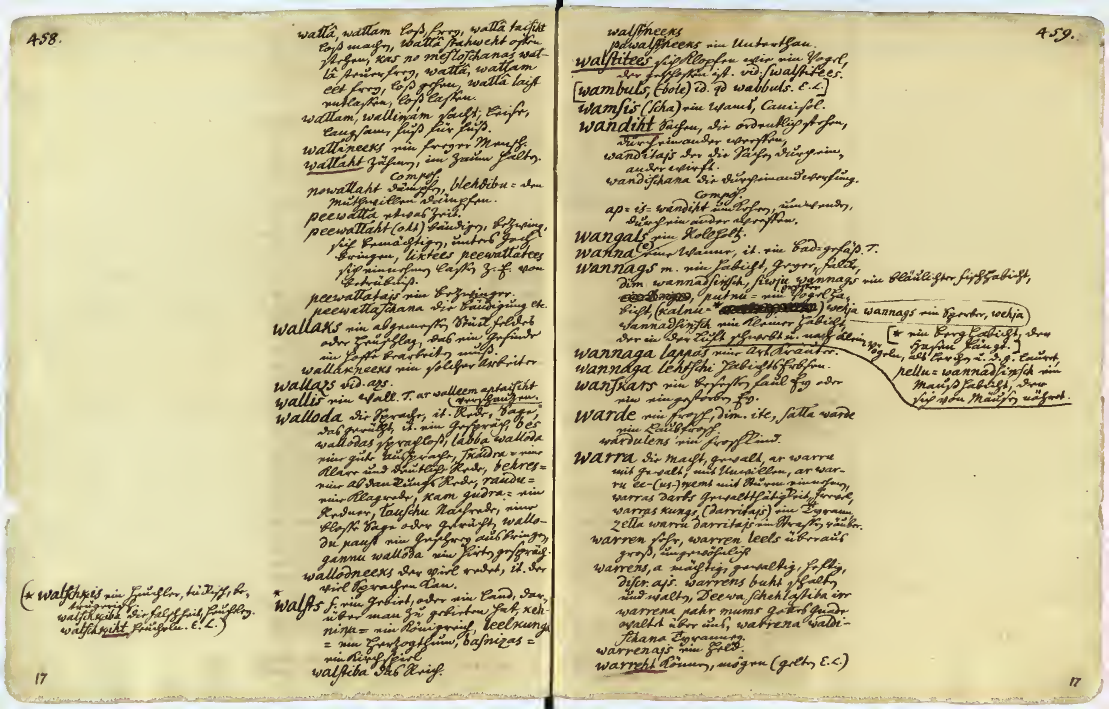 458.
wallâ, wallam loß, frey, wallâ taisiht
loß machen, wallâ stahweht offen
stehen, kas no mesloschanas wal-
lâ steuerfrey, wallâ, wallam
eet frey, loß gehen, wallâ laist
entlassen, loß lassen.
wallam, wallinam sacht, leise,
langsam, Fuß für Fuß.
wallineeks ein freyer Mensch.
wallaht zähmen, im Zaum halten.
Compos.
nowallaht dämpfen, blehdibu = den
Muthwillen dämpfen.
peewalla etwas Zeit.
peewallaht (oht) bändigen, bezwing.
sich bemächtigen, unters Joch
bringen, liktees peewallatees
sich einnehmen lassen z. E. von
Betrübniß.
peewallatajs ein Bezwinger.
peewallaschana die Bändigung etc.
wallaks ein abgemessen Stück Feldes
oder Heuschlag, das ein Gesinde
im Hofe bearbeiten muß.
wallakneeks ein solcher Arbeiter
wallajs vid. ajs.
wallis ein Wall. T. ar walleem aptaisiht
verschanzen.
walloda die Sprache, it. Rede, Sage,
das Gerücht, it. ein Gespräch, bes
wallodas sprachloß, labba walloda
eine gute Aussprache, skaidra = eine
klare und deutliche Rede, behres =
eine Abdankungs Rede, raudu =
eine Klagrede, kam gudra = ein
Redner, tauschu Nachrede, eine
bloße Sage oder Gerücht, wallo-
du paust ein Geschrey ausbringen
gannu walloda ein Hirten gespräch.
wallodneeks der viel redet, it. der
viel Sprachen kan.
* walsts f. ein Gebiet, oder ein Land, dar-
über man zu gebieten hat, keh-
nina = ein Königreich, leelkunga
= ein Herzogthum, basnizas =
ein Kirchspiel
walstiba das Reich.
(* walschkis ein Heuchler, tückisch, be-
trügerisch
walschkiba die Falschheit, Heucheley.
walschkiht heucheln. E. L.)
17
459.
walstneeks
pawalstneeks ein Unterthan.
walstitees sich klopfen wie ein Vogel,
der geschoßen ist. vid. swalstitees.
[wambuls, (-bole) id. qd wabbuls. E. L.]
wamsis (scha) ein Wams, Camisol.
wandiht Sachen, die ordentlich stehen,
durch einander werfen,
wanditajs der die Sachen durchein-
ander wirft.
wandischana die Durcheinanderwerfung.
Compos.
ap= is= wandiht umkehren, umwenden,
durch einander werfen.
wangals ein Kolholtz.
wanna (e) eine Wanne, it. ein Bad=gefäß. T.
wannags m. ein Habicht, Geyer, Falck,
dim wannadsinsch, siwju wannags ein bläulichter Fischhabicht,
putnu = ein großer Vogel Ha-
bicht, (kalnu = *) wehja wannags ein Sperber, wehja)
wannadsinsch ein kleiner Habicht,
der in der Luft schwebt u. nach kleinen Vö-
geln, als Lerchen u. d. g. lauret
[* ein Berg Habicht, der
Hasen fängt.]
pellu = wannadsinsch ein
Mauß Habicht, der
sich von Mäusen nähret.
wannaga lappas eine Art Kräuter.
wannaga lehkschi Habichts Erbsen.
wanskars ein besessen faul Ey oder
ein eingestorben Ey.
warde ein Frosch, dim. ite, salla warde
ein Laubfrosch
wardulens ein Froschkind.
warra die Macht, Gewalt, ar warru
mit Gewalt, mit Unwillen, ar war-
ru ee-(us-)nemt mit Sturm einnehmen,
warras darbs Gewaltthätigkeit, Frevel,
warras kungs, (darritajs) ein Tyrann,
zella warru darritajs ein Straßen räuber.
warren sehr, warren leels überaus
groß, ungewöhnlich
warrens, a mächtig, gewaltig, heftig,
discr. ajs. warrens buht schalten
und walten, Deewa schehlastiba irr
warrena pahr mums Gottes Gnade
waltet über uns, warrena waldi-
schana Tyranney.
warrenajs ein Held.
warreht können, mögen (gelten E. L.)
17